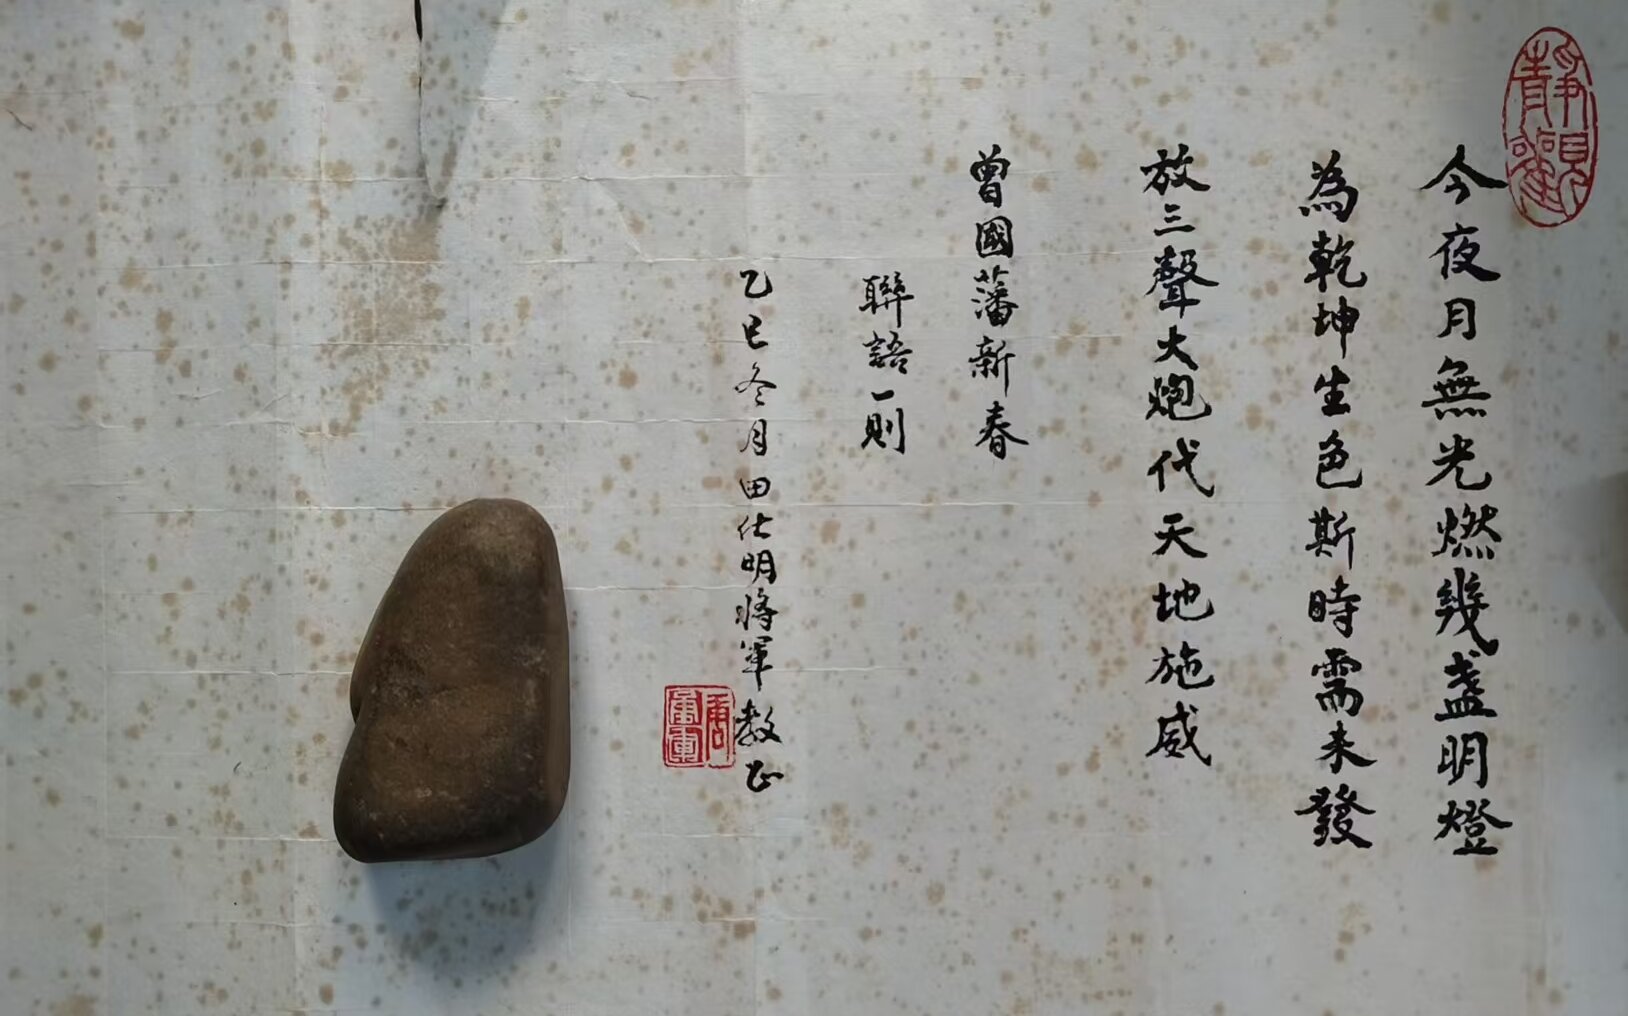 今夜月無光燃幾盞明燈
為乾坤生色斯時需未發
放三聲大炮代天地施威
曾國藩新春
聯語一則
乙巳冬月田仕明將軍教正
靜觀